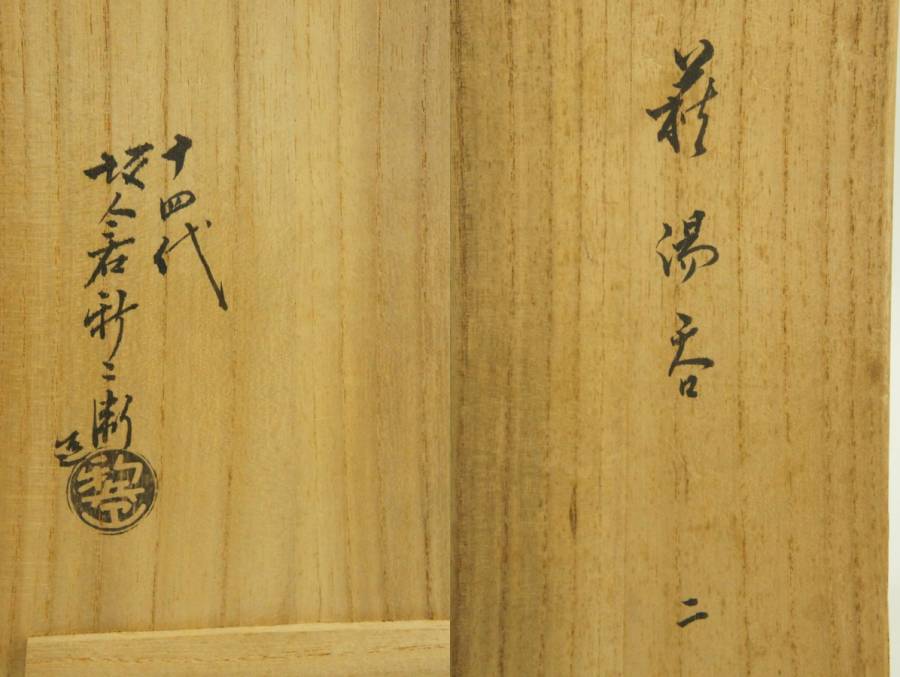 萩湯呑 二
十四代
坂倉新兵衛
造